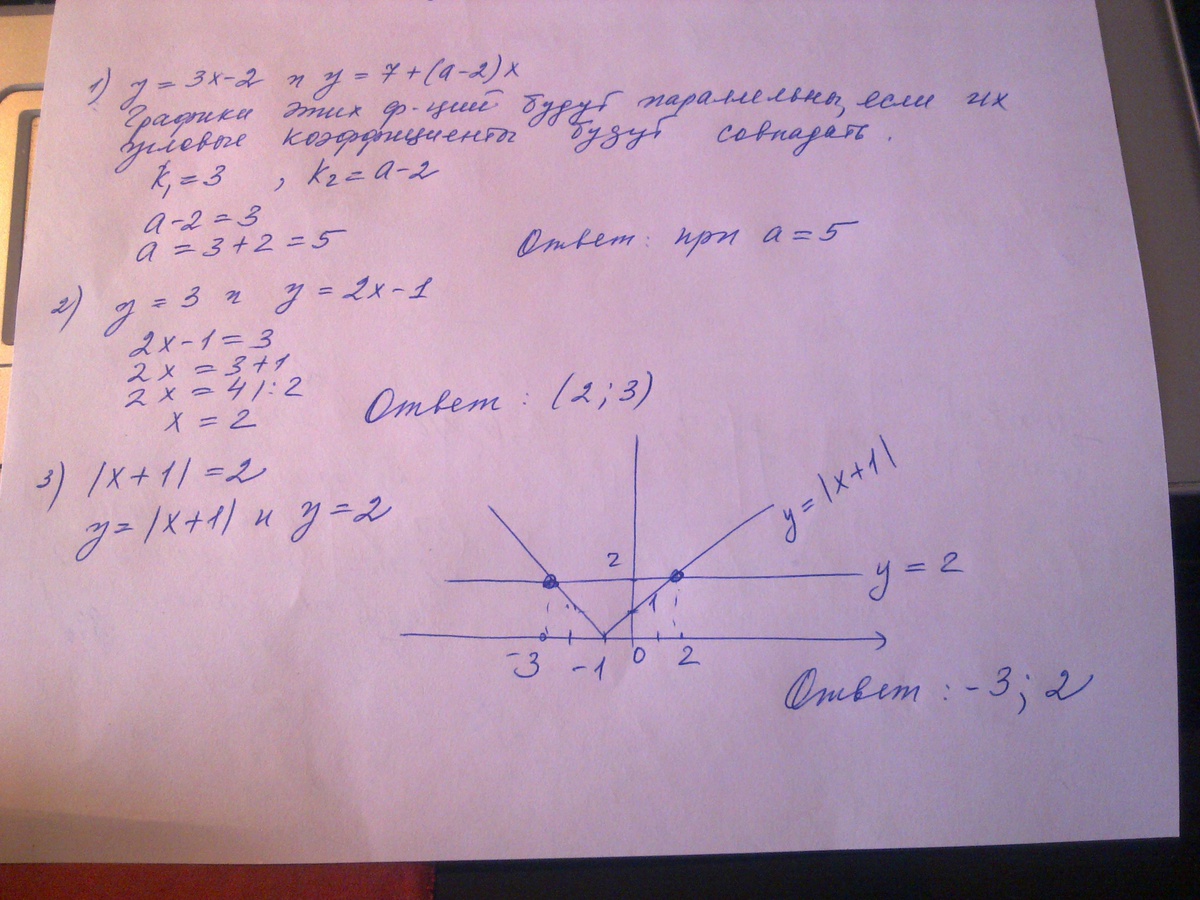 1) y = 3x-2 и y = 7+(a-2)x
Графики этих ф-ций будут параллельны, если их
угловые коэффициенты будут совпадать.
k₁=3 , k₂=a-2
a-2=3
a = 3+2=5
Ответ: при a=5
2) y = 3 и y = 2x-1
2x-1=3
2x = 3+1
2x = 4 |:2
x = 2
Ответ: (2;3)
3) |x+1|=2
y=|x+1| и y=2
y=|x+1|
2
y = 2
1
-3 -1 0 2
Ответ: -3; 2